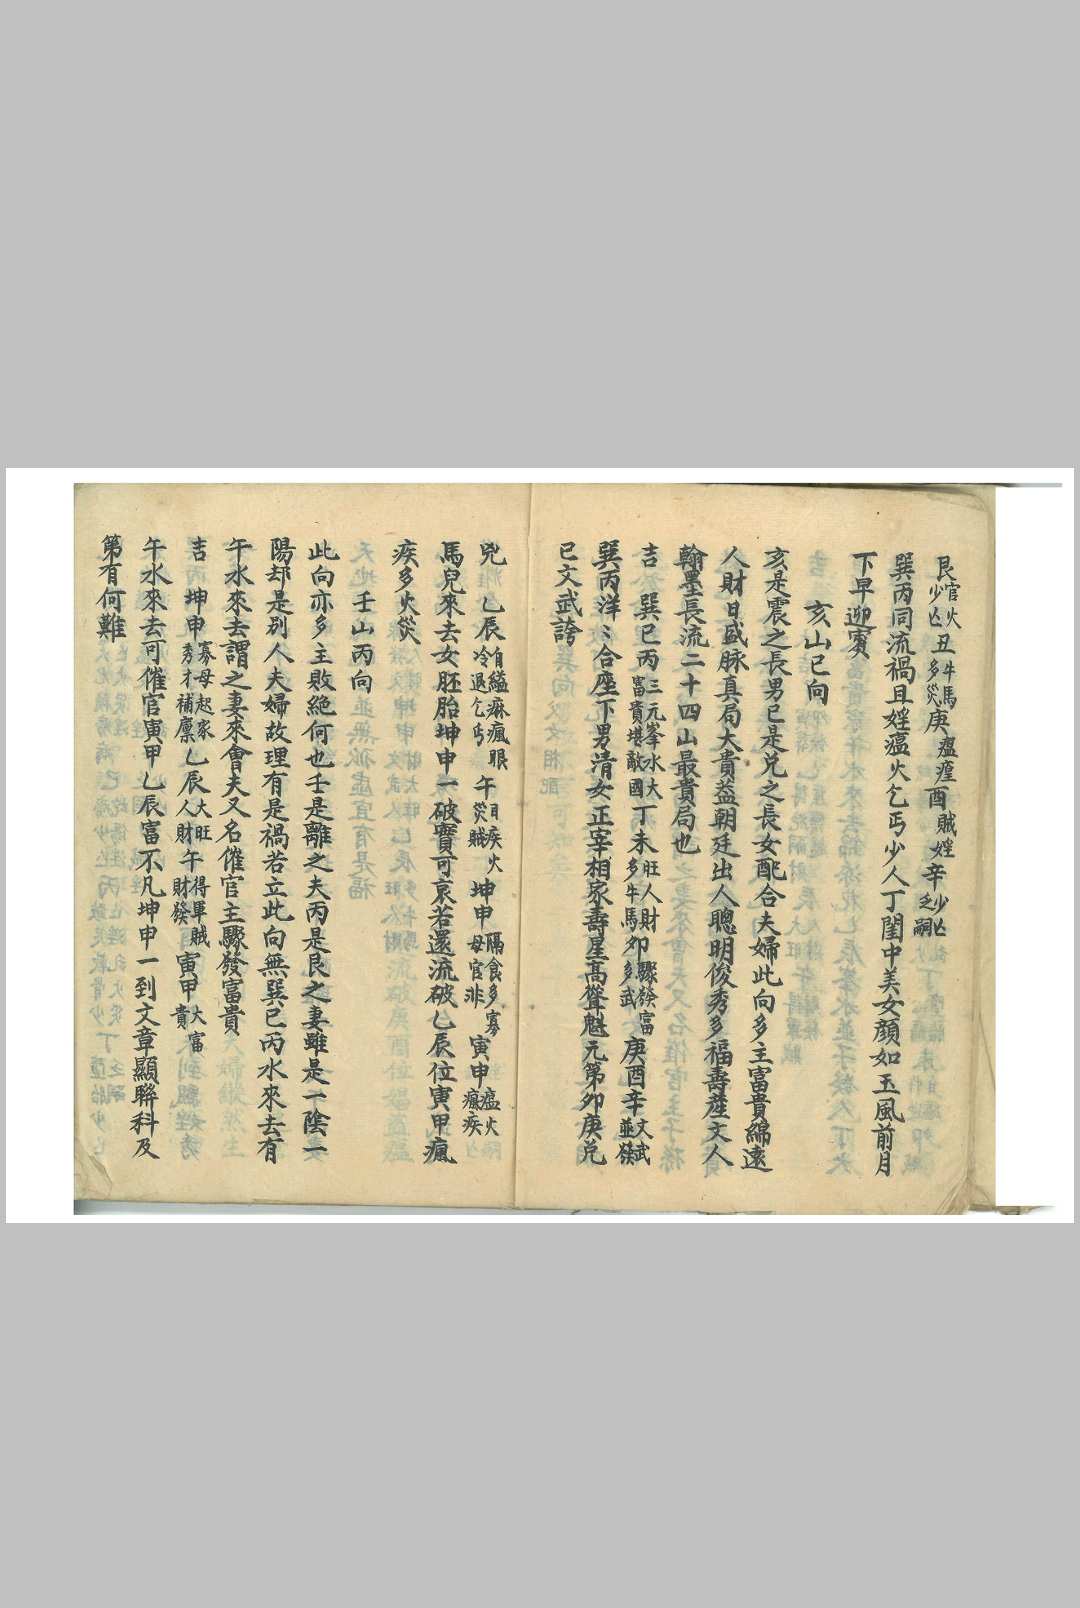 艮官火少亡丑牛馬多災庚瘟瘽酉賊婬辛少亡之嗣
巽丙同流禍且婬瘟火乞丐少人丁閨中美女顔如玉風前月
下早迎賓
亥山巳向
亥是震之長男巳是兌之長女配合夫婦此向多主富貴綿遠
人財日盛脉真局大貴益朝廷出人聰明俊秀多福壽産文人
翰墨長流二十四山最貴局也
吉 巽巳丙三元峯水大富貴堪敵國丁未旺人財多牛馬卯驟發富多武庚酉辛文武並發
巽丙洋〻合座下男清女正宰相家壽星髙聳魁元第卯庚兌
巳文武誇
兇 乙辰自縊痳瘋眼冷退乞丐午目疾火災賊坤申隔食多寡母官非寅申瘟火瘋疾
馬兒來去女胚胎坤申一破寶可哀若還流破乙辰位寅甲瘋
疾多火災
壬山丙向
此向亦多主敗絶何也壬是離之夫丙是艮之妻雖是一陰一
陽却是别人夫婦故理有是禍若立此向無巽巳丙水來去有
午水來去謂之妻來會夫又名催官主驟發富貴
吉 坤申寡母起家秀才補廩乙辰大旺人財午得軍賊財發寅甲大富貴
午水來去可催官寅甲乙辰富不凡坤申一到文章顯聨科及
第有何難